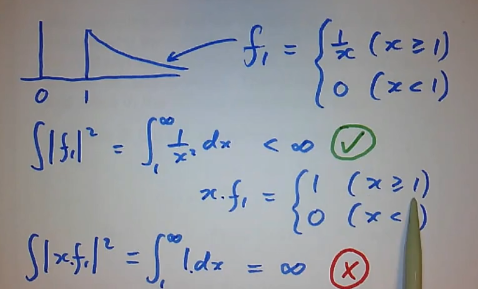 f₁ = { 1/x (x ≥ 1)
0 (x < 1)
0 1
∫|f₁|² = ∫₁^∞ 1/x² dx < ∞ ✓
x.f₁ = { 1 (x ≥ 1)
0 (x < )
∫|x.f₁|² = ∫₁^∞ 1.dx = ∞ x